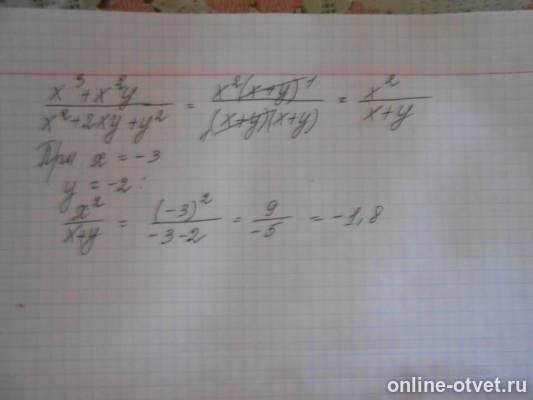 x³+x²y / x²+2xy+y² = x²(x+y)¹ / ₁(x+y)(x+y) = x² / x+y
При x = -3
y = -2:
x² / x+y = (-3)² / -3-2 = 9 / -5 = -1,8
online-otvet.ru